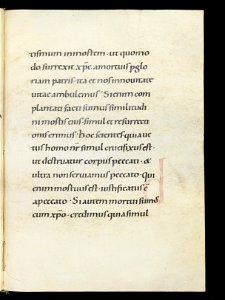 tismum inmortem · ut quomo
do surrexit xp̅c amortuis p̱ glo
riam patris · ita et nos innouitate
uitae ambulemus · Si enim com
plantati facti sumus similitudi
ni mortis eius · simul et resurrecti
onis erimus · hoc scientes quia ue
tus homo nr̅ simul crucifixus est ·
ut destruatur corpus peccati · &
ultra non seruiamus peccato · Qui
enim mortuus est · iustificatus ē
apeccato · Si autem mortui sumus
cum xp̅o · credimus quia simul